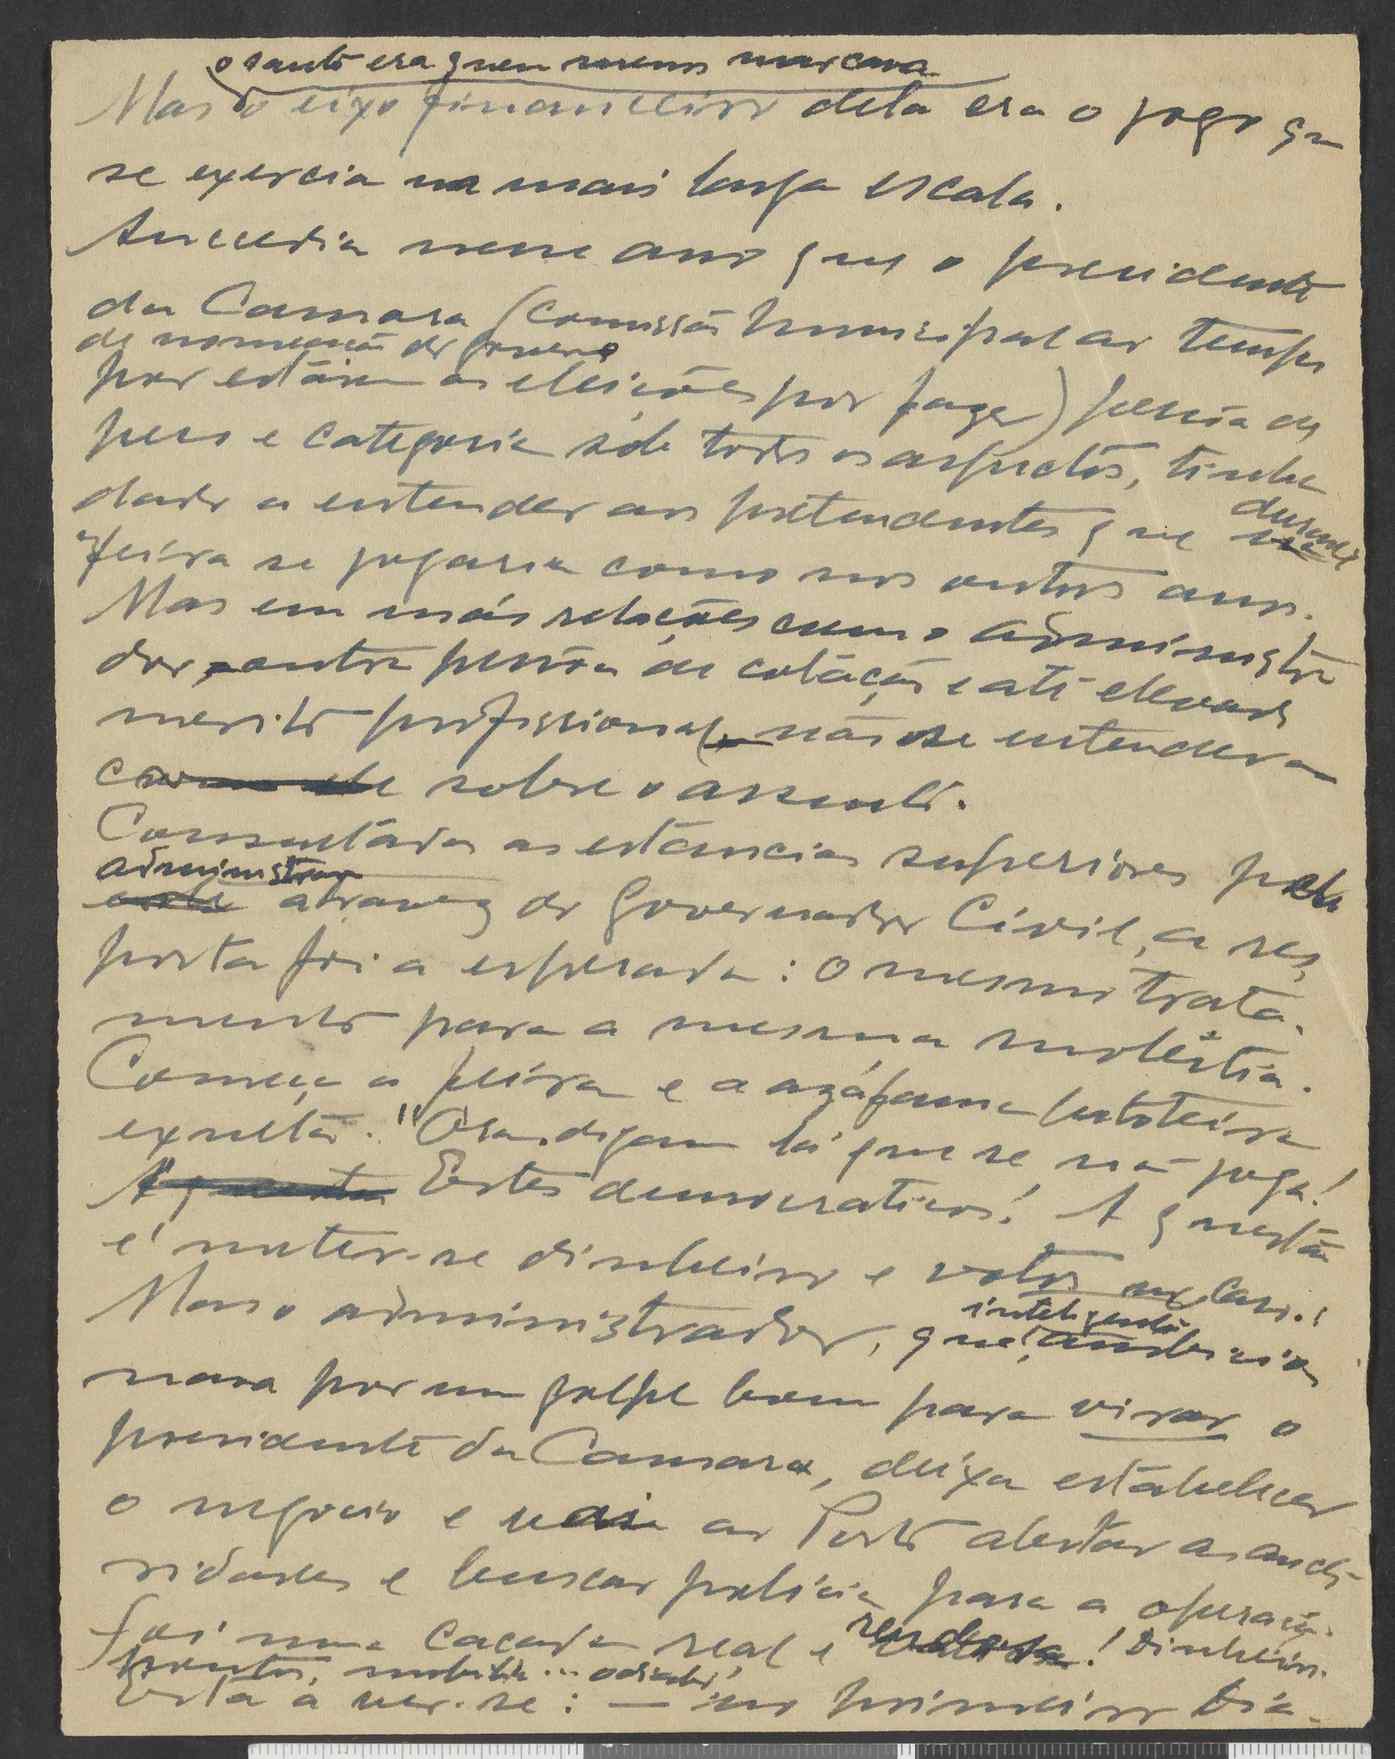 o santo era quem menos marcava
Mas o eixo financeiro dela era o jogo que
se exercia na mais larga escala.
Sucedia nesse ano que o presidente
da Camara (Comissão Municipal ao tempo
de nomeação do governo
por estarem as eleições por fazer) pessoa de
peso e categoria sob todos os aspectos, tinha
dado a entender aos pretendentes que durante
a feira se jogaria como nos outros anos.
Mas em más relações com o administra
dor, outra pessoa de cotação e até elevado
merito profissional, não se entendera
sobre o assunto.
Consultadas as estancias superiores pelo
administrador
atravez do Governador Civil, a res,
posta foi a esperada: o mesmo trata-
mento para a mesma moléstia.
Começa a feira e a azáfama batoteira
exulta. "Ora digam lá que se não joga!
Estes democraticos! A questão
é meter-se dinheiro e votos no caso!
inteligente
Mas o administrador, que ambicio
nava por um golpe bom para virar o
presidente da Camara, deixa estabelecer
o negocio e vai ao Porto alertar as auto-
ridades e buscar policia para a operação.
Foi uma caçada real e rendosa! Dinheiro.
pontos, mobilia...
Está a ver-se: — no primeiro dia-